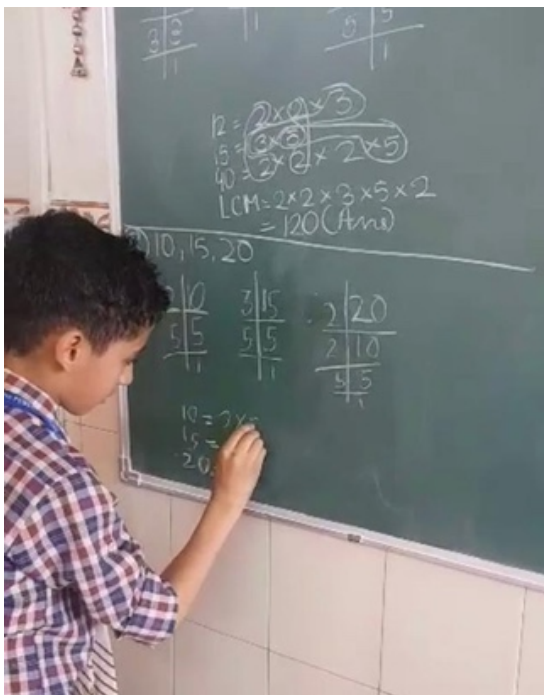 3 3
1
1
5 5
1
12 = 2 × 2 × 3
15 = 3 × 5
40 = 2 × 2 × 2 × 5
LCM = 2 × 2 × 3 × 5 × 2
= 120 (Ans)
10, 15, 20
10 3 15 2 20
5 5 5 5 2 10
1 1 5 5
1
10 = 2 ×
15 =
20